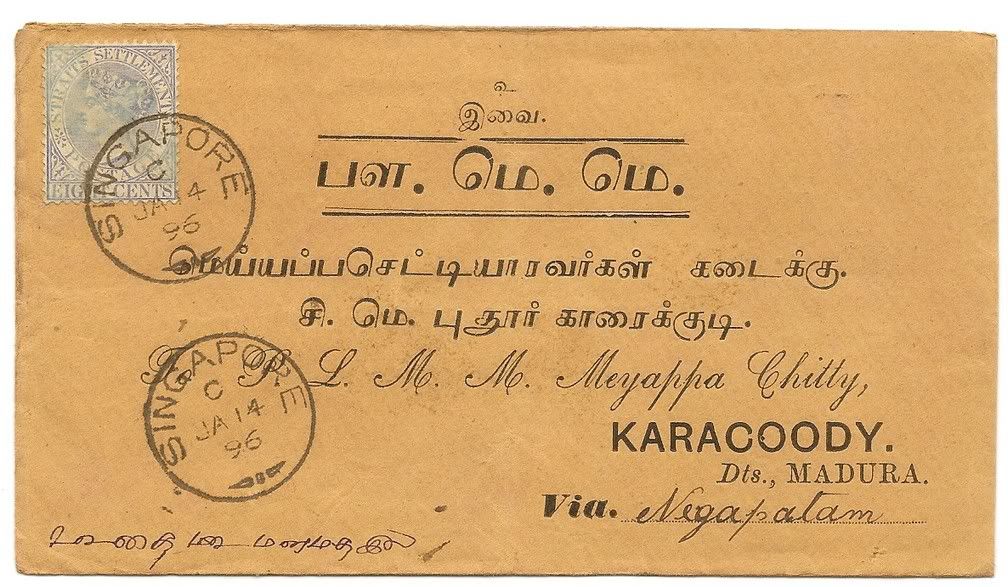 STRAITS SETTLEMENTS
POSTAGE
EIGHT CENTS
SINGAPORE
C
JA 14
96
உ
இவை.
பள. மெ. மெ.
மெய்யப்பசெட்டியாரவர்கள் கடைக்கு.
சி. மெ. புதூர் காரைக்குடி.
P. L. M. M. Meyappa Chitty,
SINGAPORE
C
JA 14
96
KARACOODY.
Dts., MADURA.
Via. Negapatam